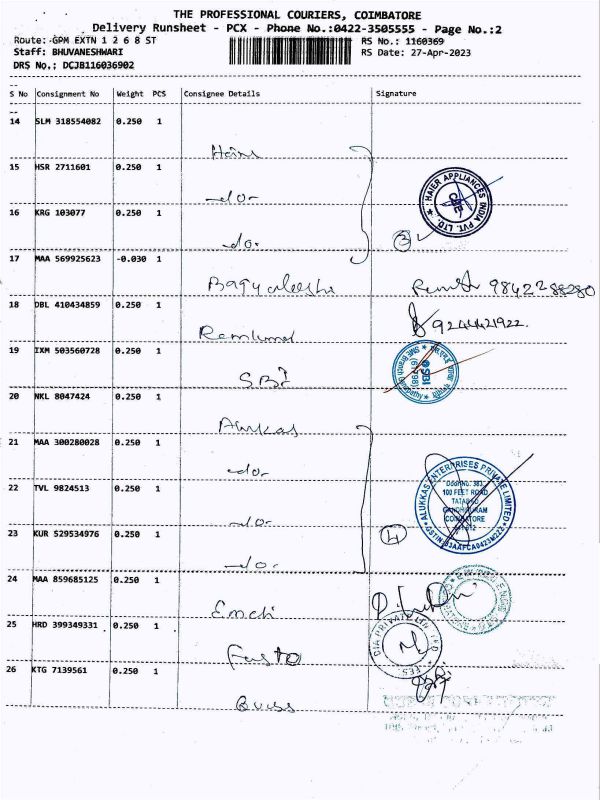 THE PROFESSIONAL COURIERS, COIMBATORE
Delivery Runsheet - PCX - Phone No.:0422-3505555 - Page No.:2
Route: GPM EXTN 1 2 6 8 ST RS No.: 1160369
Staff: BHUVANESHWARI RS Date: 27-Apr-2023
DRS No.: DCJB116036902
S No Consignment No Weight PCS Consignee Details Signature
14 SLM 318554082 0.250 1
15 HSR 2711601 0.250 1
HAIER APPLIANCES INDIA PVT. LTD.
-do-
16 KRG 103077 0.250 1
-do- 3
17 MAA 569925623 -0.030 1
9842288280
18 DBL 410434859 0.250 1
9244421922.
19 IXM 503560728 0.250 1
SBI
20 NKL 8047424 0.250 1
Alukas
21 MAA 300280028 0.250 1
-do-
ALUKKAS ENTERPRISES PRIVATE LIMITED
Door No. 383
100 FEET ROAD
TATABAD
GANDHIPURAM
COIMBATORE
22 TVL 9824513 0.250 1
-do-
23 KUR 529534976 0.250 1
-do- 4
24 MAA 859685125 0.250 1
25 HRD 399349331 0.250 1
26 KTG 7139561 0.250 1